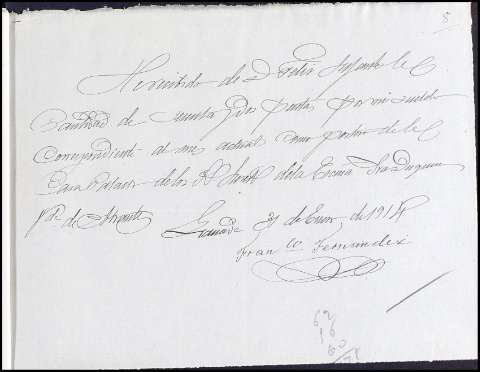 8
He recibido de D. Felix la
Cantidad de sesenta y dos pesetas por mi sueldo
Correspondiente al mes actual como portero de la
Casa Palacio de los de la Excma Sra Duquesa
de
Granada 31 de Enero de 1914
Franco Fernandez
62
16
60